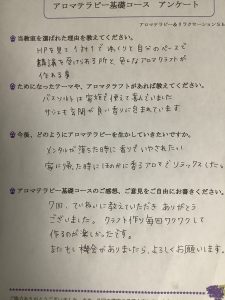 アロマテラピー基礎コース アンケート
アロマテラピー&リラクゼーション
当教室を選ばれた理由を教えてください。
HPを見て 1対1で ゆっくりと自分のペースで
講義を受けられる所と、色々なアロマクラフトが
作れる事
ためになったテーマや、アロマクラフトがあれば教えてください。
バスソルトは家族で使って喜んでいました
サシェも玄関が良い香りに包まれています
今後、どのようにアロマテラピーを生かしていきたいですか。
メンタルが落ちた時に香りでいやされたい
家に帰った時にほのかに香るアロマでリラックスしたい。
アロマテラピー基礎コースのご感想、ご意見をご自由にお書きください。
7回、ていねいに教えていただき ありがとう
ございました。 クラフト作り毎回ワクワクして
作るのが楽しかったです。
またもし機会がありましたら、よろしくお願いします。